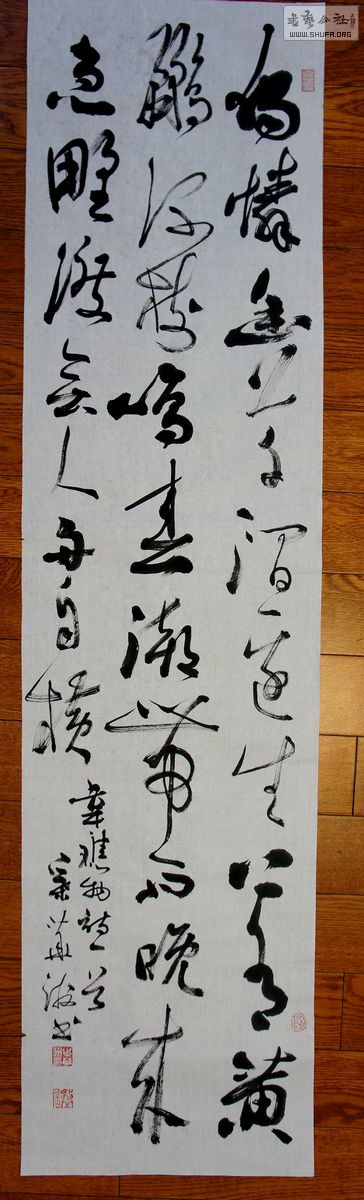 獨憐幽草澗邊生上有黄
鸝深樹鳴春潮帶雨晚来
急野渡無人舟自横
韋應物詩一首
書
書藝公社
WWW.SHUFA.ORG